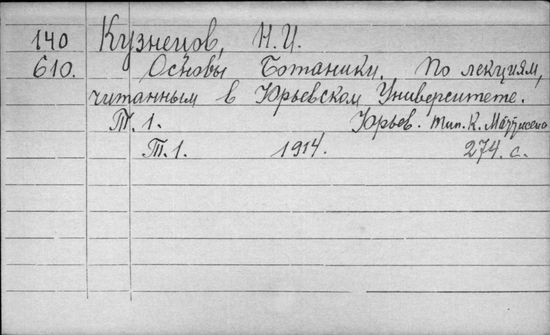 140 Кузнецов, Н. И.
610. Основы Ботаники. По лекциям,
читанным в Юрьевском Университете.
Т. 1. Юрьев. тип. К. Маттисена
Т. 1. 1914. 274. с.